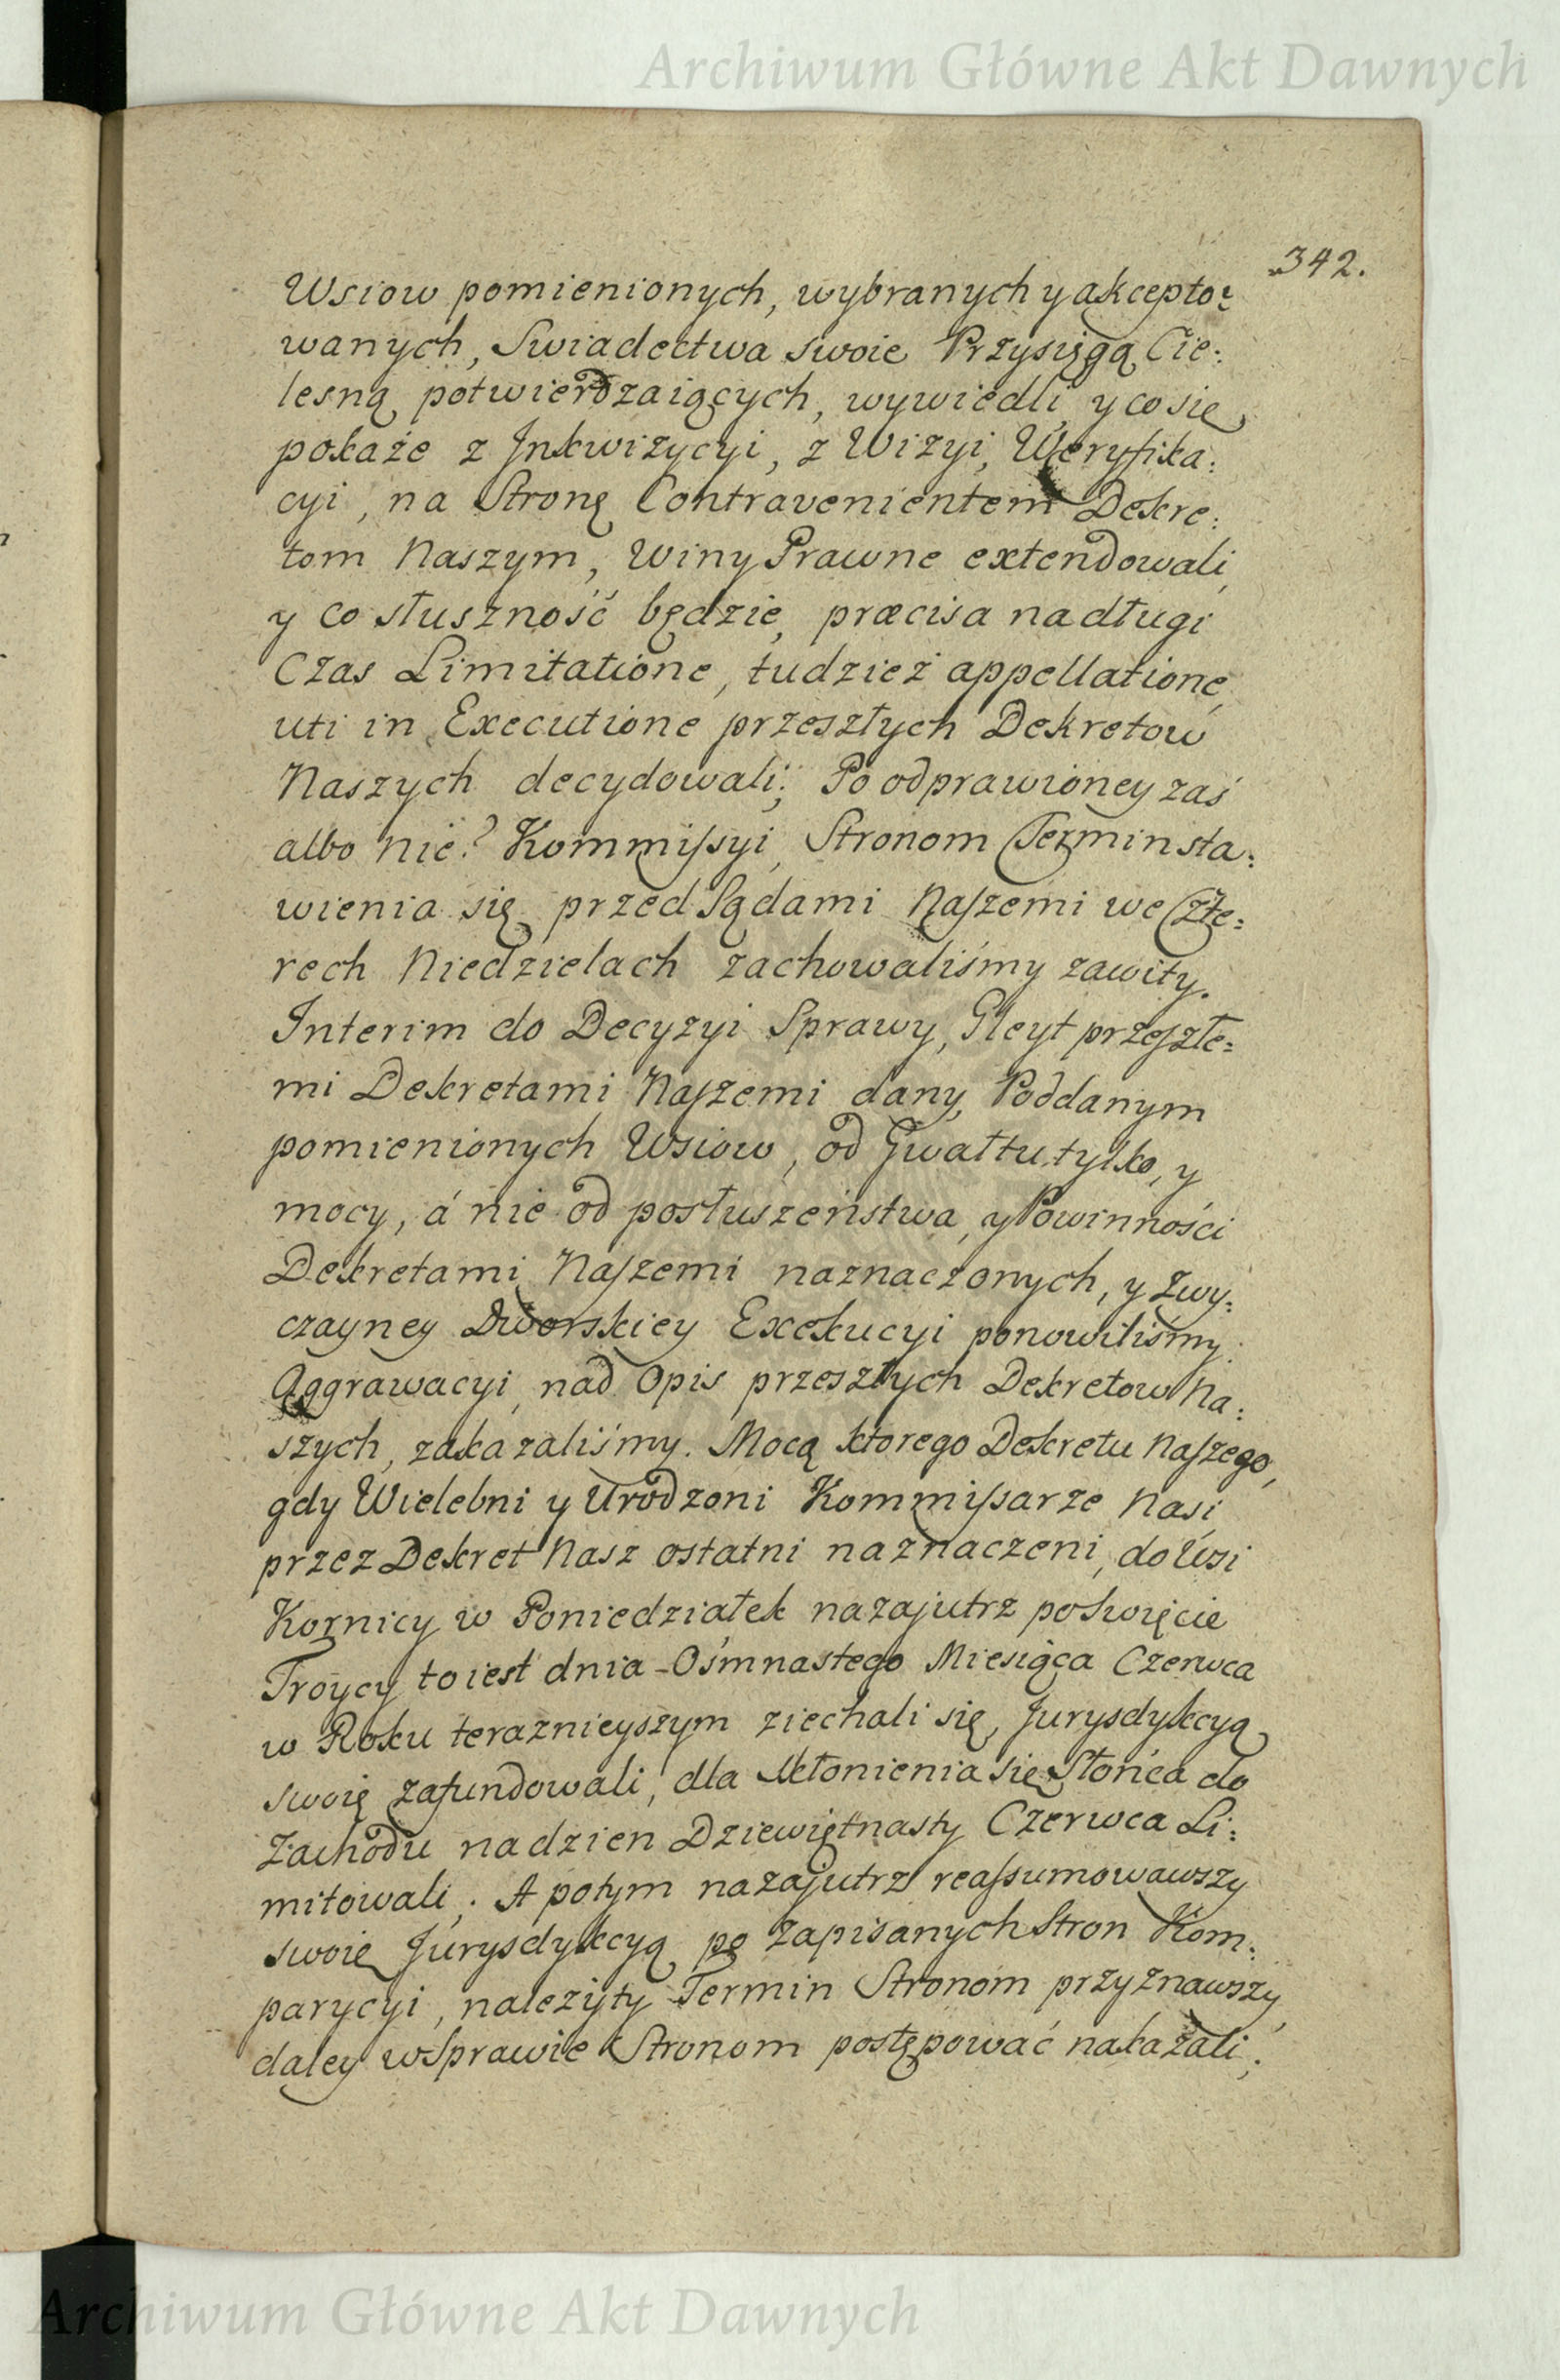 Archiwum Główne Akt Dawnych
342.
Wsiow pomienionych, wybranych y akcepto:
wanych, Swiadectwa swoie Przysięgą Cie:
lesną potwierdzaiących, wywiedli, y co się
pokaże z Inkwizycyi, z Wizyi, Weryfika:
cyi, na Stronę Contravenientem Dekre:
tom Naszym, Winy Prawne extendowali,
y co słuszność będzie, præcisa na długi
Czas Limitatione, tudzież appellatione,
uti in Executione przeszłych Dekretow
Naszych decydowali; Po odprawioney zaś
albo nie? Kommissyi, Stronom Termin sta:
wienia się przed Sądami Naszemi we Czte:
rech Niedzielach zachowaliśmy zawity.
Interim do Decyzyi Sprawy, Gleyt przeszłe:
mi Dekretami Naszemi dany, Poddanym
pomienionych Wsiow, od Gwałtu tylko, y
mocy, á nie od posłuszeństwa, y Powinności
Dekretami Naszemi naznaczonych, y Zwy:
czayney Dworskiey Exekucyi ponowiliśmy.
Aggrawacyi, nad Opis przeszłych Dekretow Na:
szych, zakazaliśmy. Mocą ktorego Dekretu Naszego,
gdy Wielebni y Urodzoni Kommissarze Nasi
przez Dekret Nasz ostatni naznaczeni, do Wsi
Kornicy w Poniedziałek nazajutrz po Swięcie
Troycy to iest dnia Ośmnastego Miesiąca Czerwca
w Roku teraznieyszym ziechali się, Jurysdykcyą
swoię zafundowali, dla Skłonienia się Słońca do
Zachodu na dzien Dziewiętnasty Czerwca Li:
mitowali. A potym nazajutrz reassumowawszy
swoię Jurysdykcyą po zapisanych Stron Kom:
parycyi, należyty Termin Stronom przyznawszy,
daley w Sprawie Stronom postępować nakazali;
Archiwum Główne Akt Dawnych